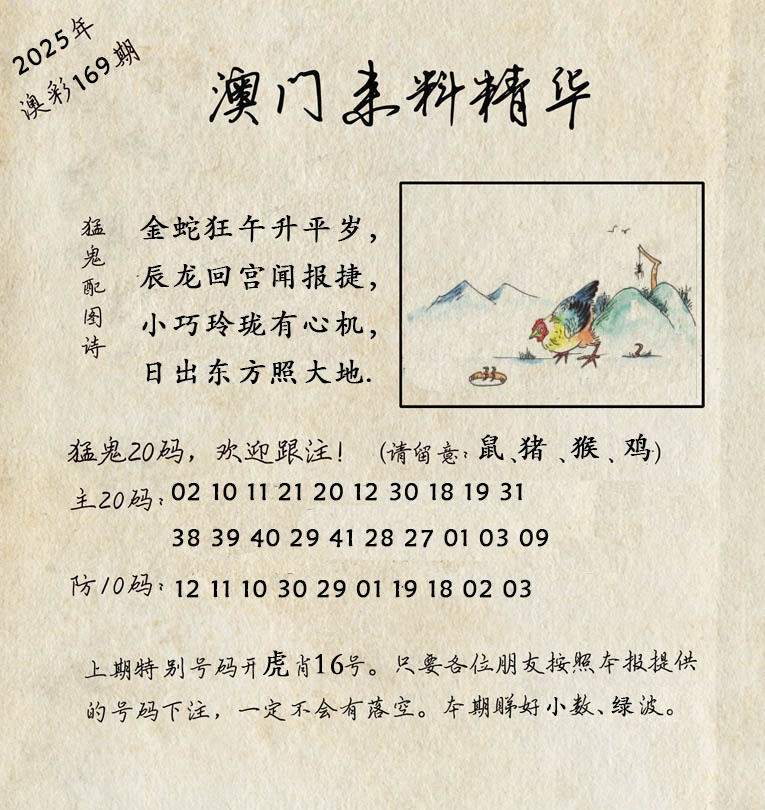 2025年
澳彩169期
澳门来料精华
猛鬼配图诗
金蛇狂午升平岁，
辰龙回宫闻报捷，
小巧玲珑有心机，
日出东方照大地.
猛鬼20码，欢迎跟注！（请留意：鼠、猪、猴、鸡）
主20码：02 10 11 21 20 12 30 18 19 31
38 39 40 29 41 28 27 01 03 09
防10码：12 11 10 30 29 01 19 18 02 03
上期特别号码开虎肖16号。只要各位朋友按照本报提供
的号码下注，一定不会有落空。本期睇好小数、绿波。